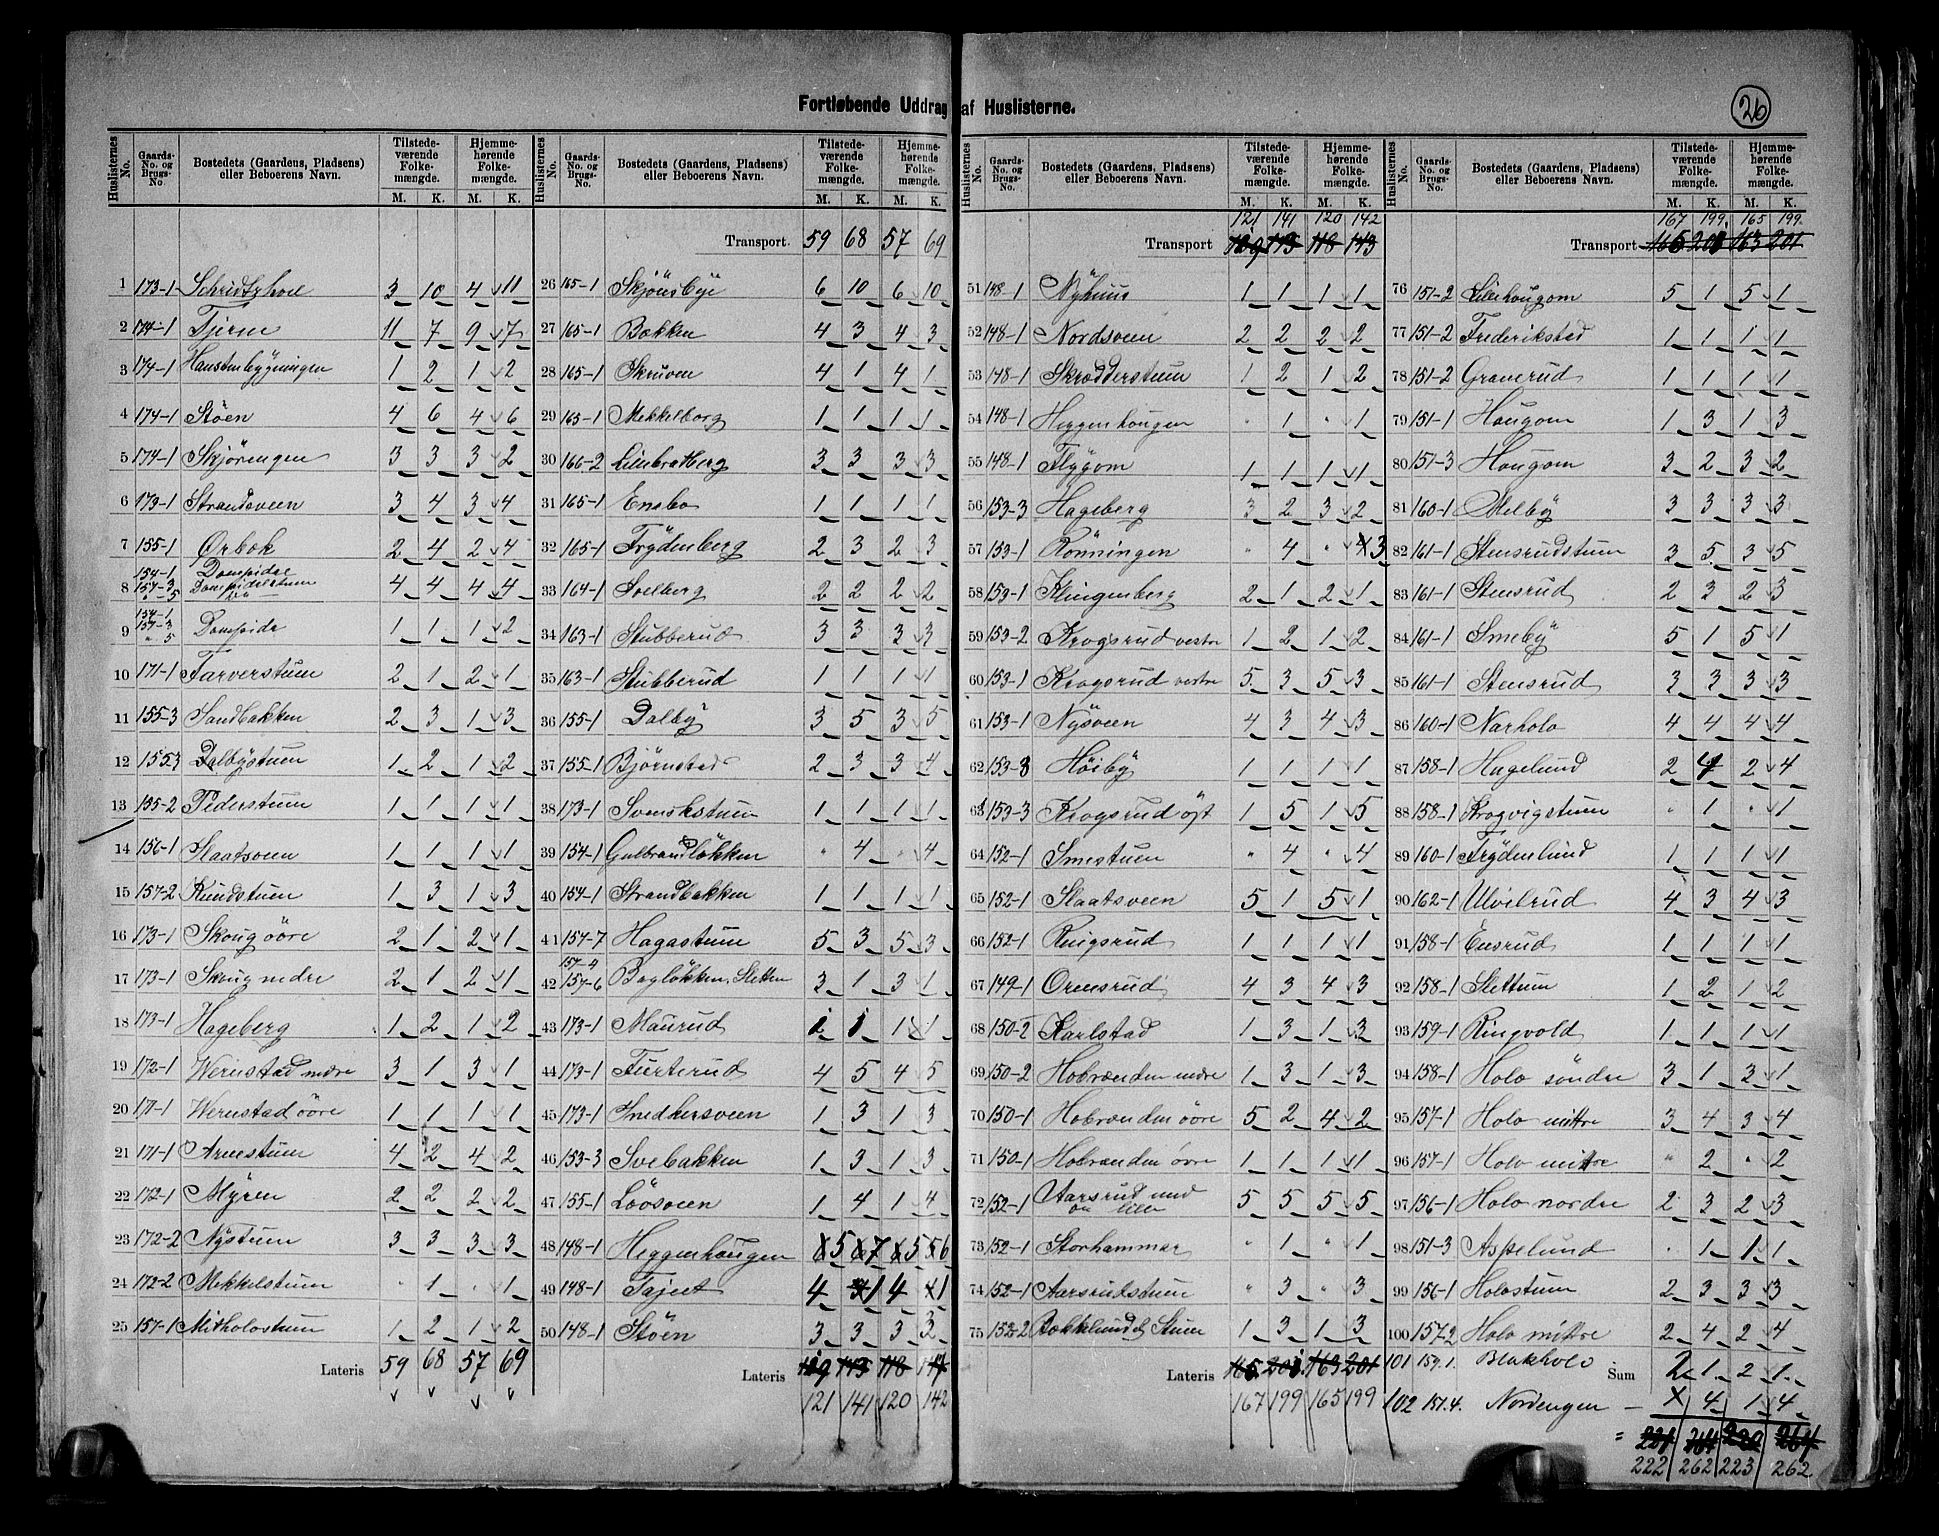 Fortløbende Uddrag af Huslisterne.
26
Huslisternes No. | Gaards-No. og Brugs-No. | Bostedets (Gaardens, Pladsens) eller Beboerens Navn. | Tilstedeværende Folkemængde. M. K. | Hjemmehørende Folkemængde. M. K.
Transport 59 68 57 69
1 173-1 Schridtzhoel 3 10 4 11
2 174-1 Tjern 11 7 9 7
3 174-1 Hanstenbygningen 1 2 1 2
4 174-1 Støen 4 6 4 6
5 174-1 Skjørengen 3 3 3 2
6 173-1 Strandsveen 3 4 3 4
7 155-1 Ørbæk 2 4 2 4
8 154-1 157-3 " 5 Dompidre Dompidrestum 4 4 4 4
9 154-1 157-3 " 5 Dompidr 1 1 1 2
10 171-1 Farverstum 2 1 2 1
11 155-3 Sandbakken 2 3 1 3
12 155-3 Dalbystuen 1 2 1 2
13 155-2 Pederstuen 1 1 1 1
14 156-1 Slaatsveen 1 1 1 1
15 157-2 Knudstuen 1 3 1 3
16 173-1 Skoug övre 2 1 2 1
17 173-1 Skoug nedre 2 1 2 1
18 173-1 Hageberg 1 2 1 2
19 172-1 Wernstad nedre 3 1 3 1
20 171-1 Wernstad övre 1 1 1 1
21 171-1 Arnestuen 4 2 4 2
22 172-1 Myren 2 2 2 2
23 172-2 Nystuen 3 3 3 3
24 172-2 Mekkelstuen " 1 " 1
25 157-1 Mitholostuen 1 2 1 2
Lateris 59 68 57 69
26 165-1 Skjönsbye 6 10 6 10
27 165-1 Bækken 4 3 4 3
28 165-1 Skruven 4 1 4 1
29 165-1 Mekkelborg 1 1 1 1
30 166-2 Lillebratberg 3 3 3 3
31 165-1 Ensbo 1 1 1 1
32 165-1 Frydenberg 2 3 2 3
33 164-1 Soelberg 2 2 2 2
34 163-1 Stubberud 3 3 3 3
35 163-1 Stubberud 1 1 1 1
36 155-1 Dalby 3 5 3 5
37 155-1 Bjørnstad 2 3 3 4
38 173-1 Svenskstuen 1 1 1 1
39 154-1 Gulbrandløkken " 4 " 4
40 154-1 Strandbakken 1 1 1 1
41 157-7 Hagastuen 5 3 5 3
42 157-4 157-6 Bogløkken, Sletten 3 1 3 1
43 173-1 Maurud 1 1 1 1
44 173-1 Furterud 4 5 4 5
45 173-1 Snedkersveen 1 3 1 3
46 153-3 Svebakken 1 3 1 3
47 155-1 Lövsveen 1 4 1 4
48 148-1 Heggenhaugen 5 7 5 6
49 148-1 Tajet 4 1 4 1
50 148-1 Støen 3 3 3 3
Lateris 119 143 118 144
121 141 120 142
121 141 120 142
Transport 119 143 118 143
51 148-1 Nyhuus 1 1 1 1
52 148-1 Nordsveen 2 2 2 2
53 148-1 Skrædderstuen 1 2 1 2
54 148-1 Heggenhougen " 1 " 1
55 148-1 Flygom 1 1 1 1
56 153-3 Hageberg 3 2 3 2
57 153-1 Rönningen " 4 " 3
58 153-1 Klingenberg 2 1 2 1
59 153-2 Krogsrud vestre 1 2 1 2
60 153-1 Krogsrud vestre 5 3 5 3
61 153-1 Nysveen 4 3 4 3
62 153-3 Höiby 1 1 1 1
63 153-3 Krogsrud öst 1 5 1 5
64 152-1 Smestuen " 4 " 4
65 152-1 Slaatsveen 5 1 5 1
66 152-1 Ringsrud 1 1 1 1
67 149-1 Ormsrud 4 3 4 3
68 150-2 Karlstad 1 3 1 3
69 150-2 Hobrænden nedre 1 3 1 3
70 150-1 Hobrænden övre 5 2 4 2
71 150-1 Hobrænden övre 1 1 1 1
72 152-1 Aarsrud med lille 5 5 5 5
73 152-1 Storhammer " 1 " 1
74 152-1 Aarsrudstuen " 3 " 3
75 152-2 Bækklund, Stuen 1 3 1 3
Lateris 165 201 163 201
167 199 165 199
167 199 165 199
Transport 165 201 163 201
76 151-2 Lillehougom 5 1 5 1
77 151-2 Frederikstad 1 1 1 1
78 151-2 Graverud 1 1 1 1
79 151-1 Hougom 1 3 1 3
80 151-3 Hougom 3 2 3 2
81 160-1 Melby 3 3 3 3
82 161-1 Stensrudstuen 3 5 3 5
83 161-1 Stensrud 2 3 2 3
84 161-1 Smeby 5 1 5 1
85 161-1 Stensrud 3 3 3 3
86 160-1 Narholo 4 4 4 4
87 158-1 Hagelund 2 4 2 4
88 158-1 Krogvigstuen " 1 " 1
89 160-1 Frydenlund 1 1 1 1
90 162-1 Ulvilrud 4 3 4 3
91 158-1 Ensrud 1 1 1 1
92 158-1 Slettum 1 2 1 2
93 159-1 Ringvold 1 1 1 1
94 158-1 Holo söndre 3 1 3 1
95 157-1 Holo mittre 3 4 3 4
96 157-1 Holo mittre " 2 " 2
97 156-1 Holo nordre 2 3 2 3
98 151-3 Aspelund " 1 1 1
99 156-1 Holostuen 2 3 3 3
100 157-2 Holo mittre 2 4 2 4
101 159.1. Blakholo Sum 2 1 2 1
102 157.4. Nordengen – X 4 1 4
= 221 264 220 264
222 262 223 262